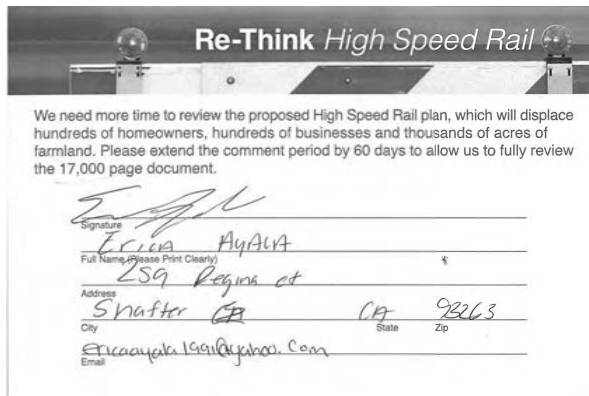 Re-Think High Speed Rail
We need more time to review the proposed High Speed Rail plan, which will displace
hundreds of homeowners, hundreds of businesses and thousands of acres of
farmland. Please extend the comment period by 60 days to allow us to fully review
the 17,000 page document.
Signature
Erica Ayala
Full Name (Please Print Clearly)
259 Regina ct
Address
Shafter CA 93263
City State Zip
ericaayala1991@yahoo.com
Email